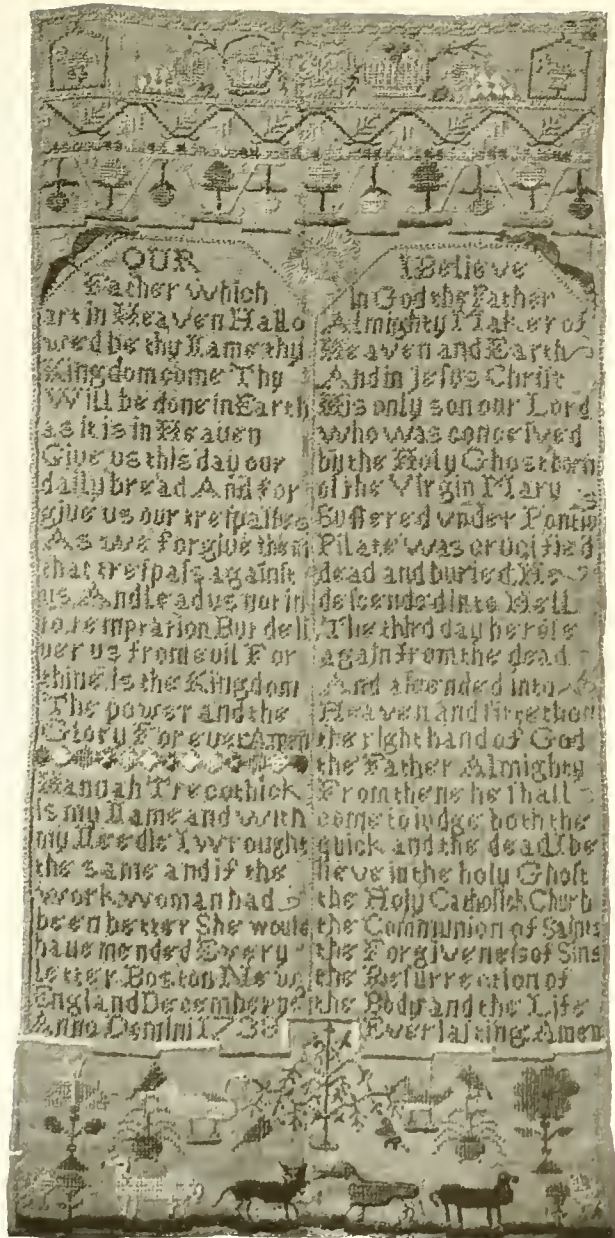 OUR
Father which
art in Heaven Hallo
wed be thy Name thy
Kingdom come Thy
Will be done in Earth
as it is in Heauen
Give us this day our
daily bread And for
give us our treſpaſſes
As we forgive them
that treſpaſs againſt
us And Lead us not in
to temptation But deli
ver us from evil For
thine is the Kingdom
The power and the
Glory For ever Amen
Hannah Trecothick
is my Name and with
my Needle I wrought
the same and if the
work woman had
been better She would
haue mended Every
Letter Boston New
England December
Anno Domini
I Believe
In God the Father
Almighty Maker of
Heaven and Earth
And in Jeſus Chriſt
His only son our Lord
who was conceived
by the Holy Ghost born
of the Virgin Mary
Suffered vnder Pontiu
Pilate was crucified
dead and buried He
deſcended into Hell
The third day he roſe
again from the dead
And aſcended into
Heaven and
the right hand of God
the Father Almighty
From thene he ſhall
come to iudge both the
quick and the dead I be
lieve in the holy Ghoſt
the Holy Catholick Church
the Communion of Saints
the Forgiveneſs of Sins
the Reſurrection of
the Body and the Life
Everlaſting Amen